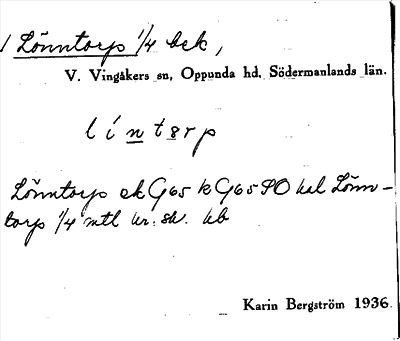 1 Lönntorp 1/4 bek,
V. Vingåkers sn, Oppunda hd, Södermanlands län.
l í n t ə r p
Lönntorp ek G65 k G65 PO hal Lönn-
torp 1/4 mtl kr. sk. kb
Karin Bergström 1936.